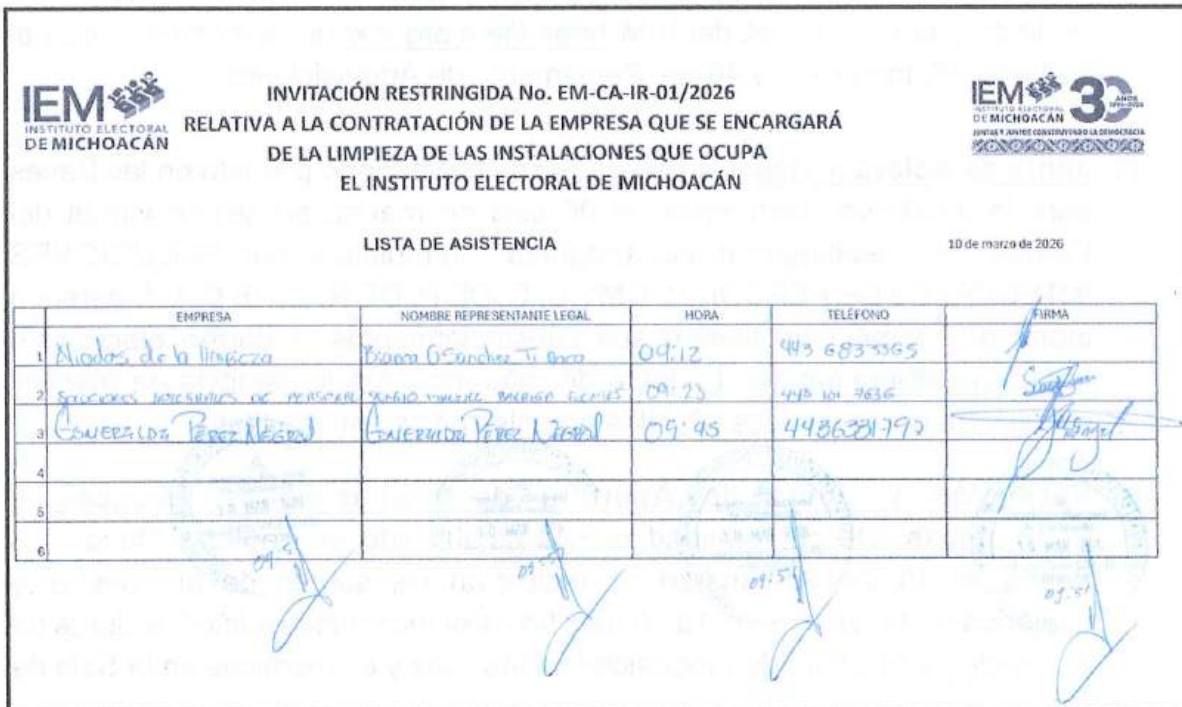 IEM
INSTITUTO ELECTORAL
DE MICHOACÁN
INVITACIÓN RESTRINGIDA No. EM-CA-IR-01/2026
RELATIVA A LA CONTRATACIÓN DE LA EMPRESA QUE SE ENCARGARÁ
DE LA LIMPIEZA DE LAS INSTALACIONES QUE OCUPA
EL INSTITUTO ELECTORAL DE MICHOACÁN
IEM
INSTITUTO ELECTORAL
DE MICHOACÁN
30 AÑOS
JUNTAS Y JUNTOS CONSTRUYENDO LA DEMOCRACIA
LISTA DE ASISTENCIA
10 de marzo de 2026
EMPRESA NOMBRE REPRESENTANTE LEGAL HORA TELÉFONO FIRMA
1 Aliados de la limpieza Sanchez 09:12 443 6833365
2 SOLUCIONES DE PERSONAL SERGIO 09:23 443 101 7636
3 ESMERALDA PEREZ NEGRON ESMERALDA PEREZ NEGRON 09:45 4436381792
4
5
6
09:51 09:51 09:51 09:51